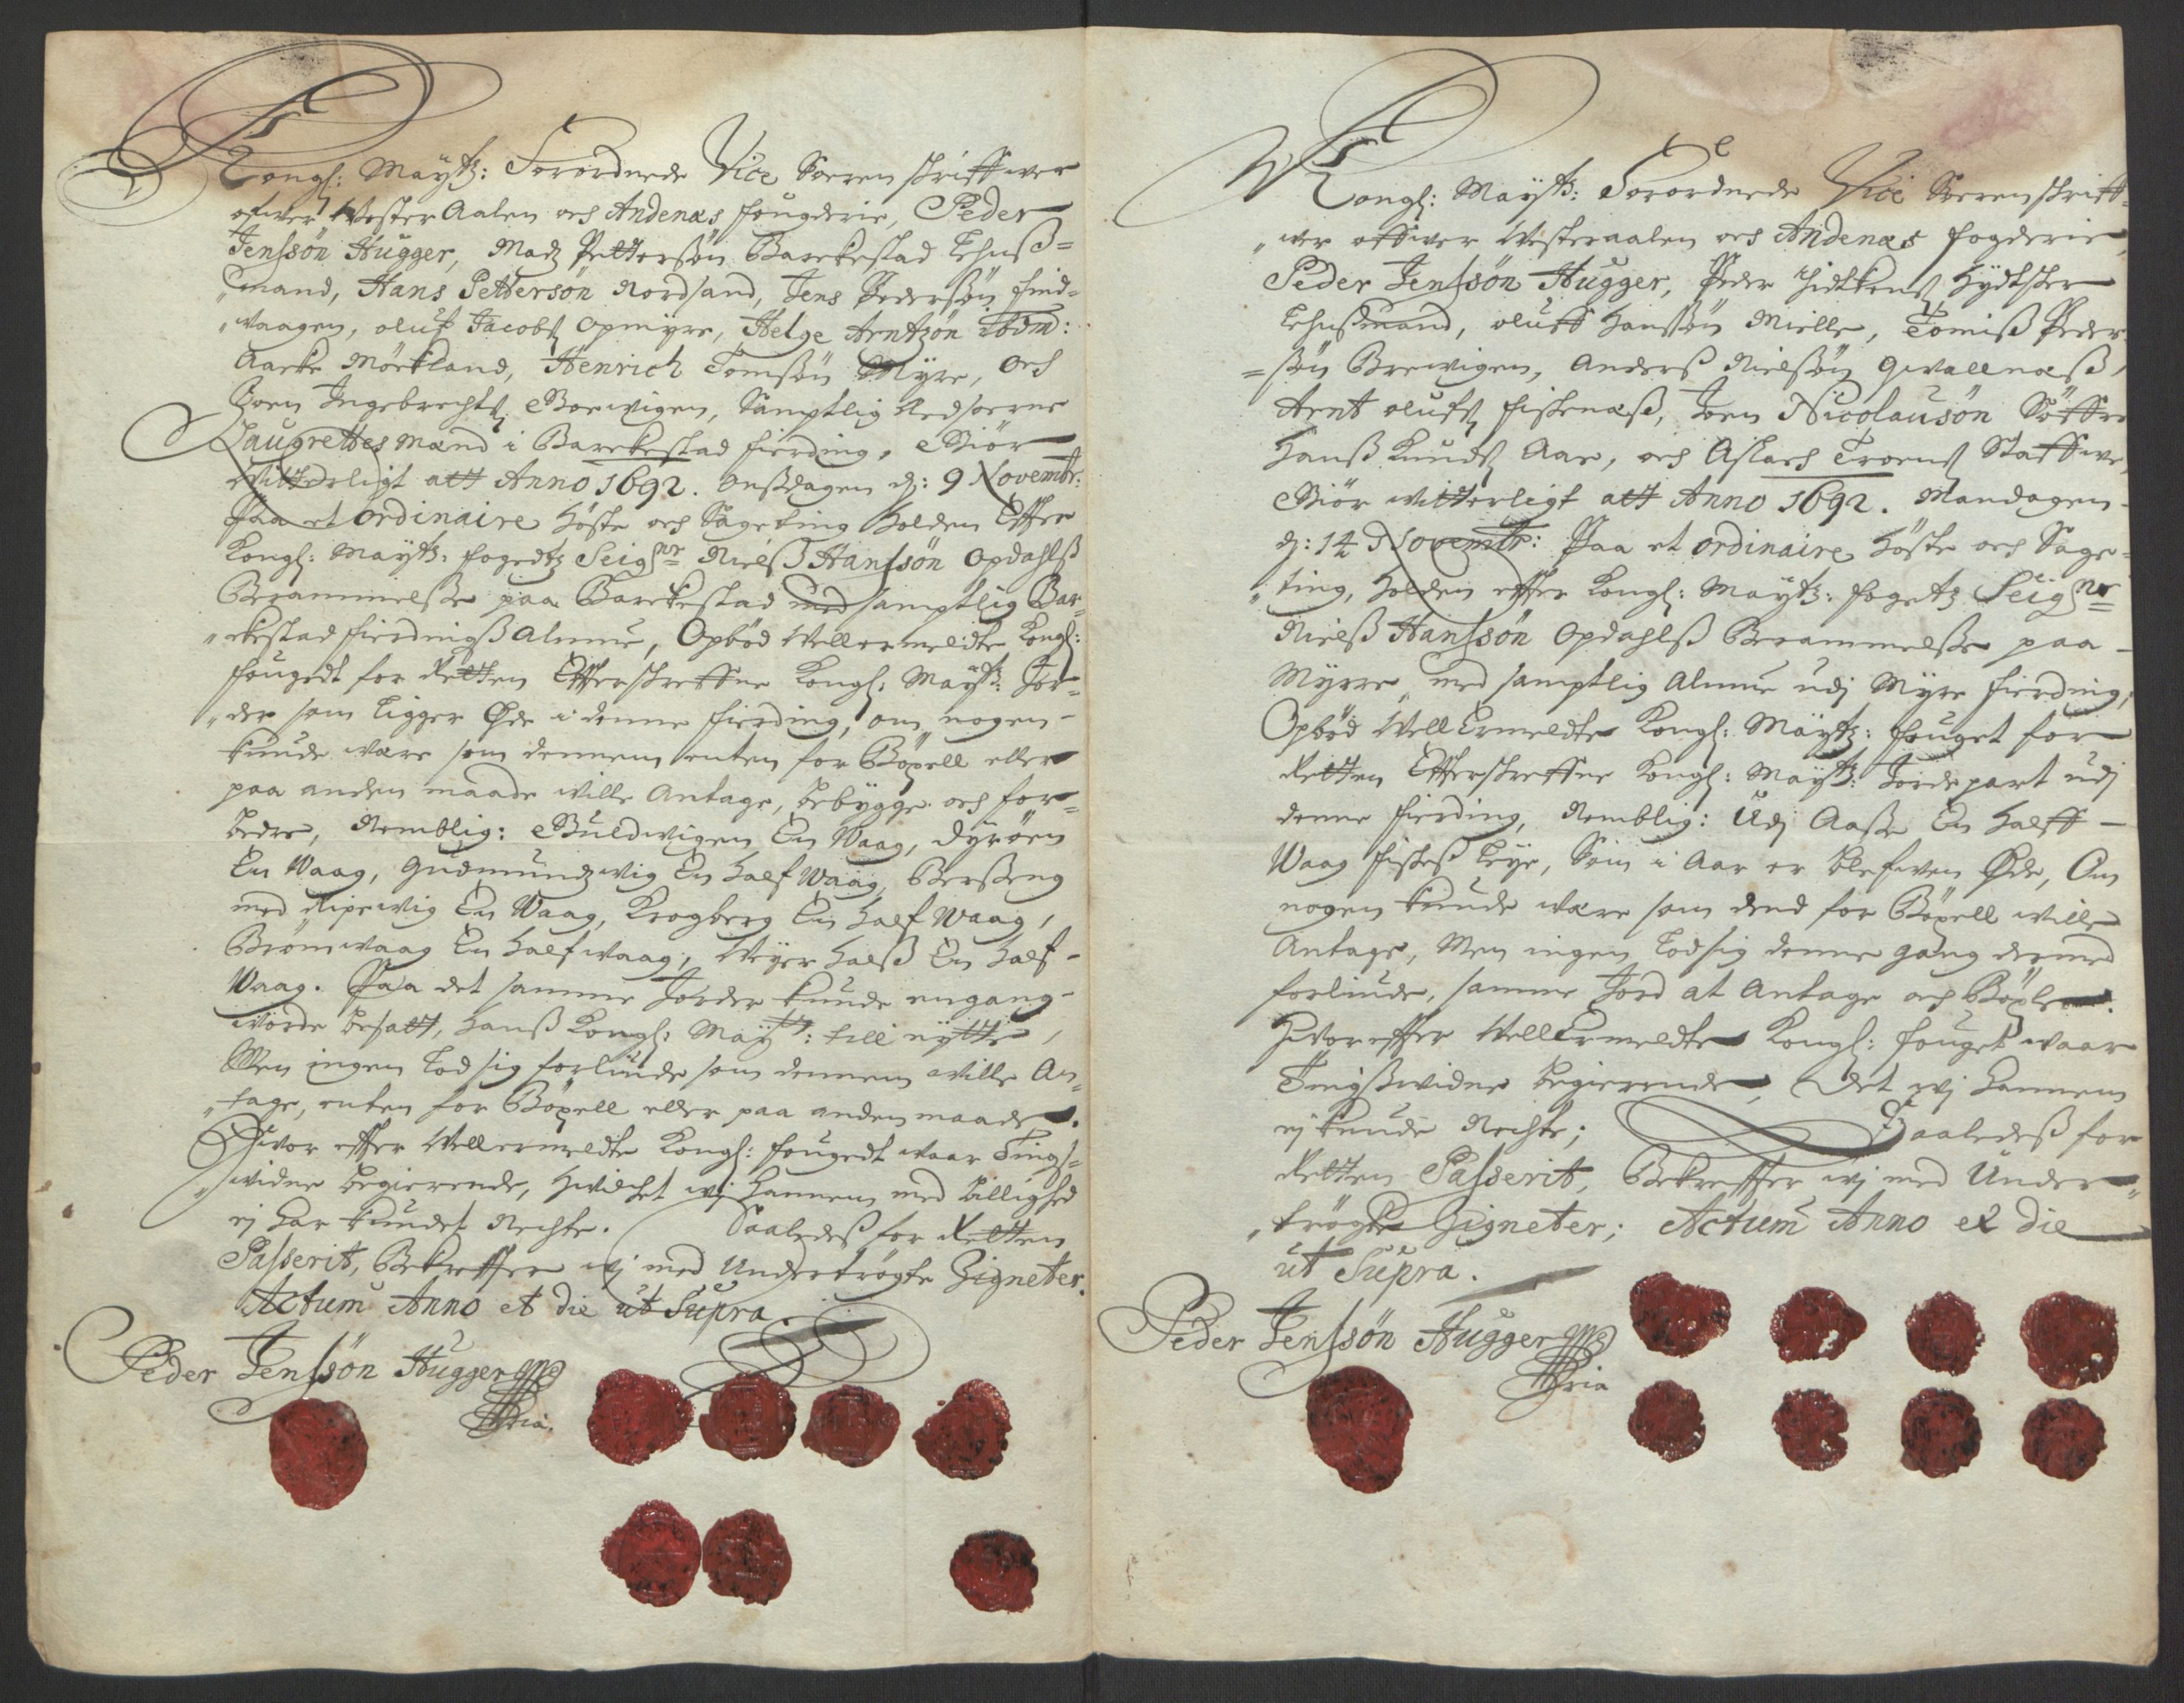 Kongl: Mayttz: Forordnede Vice Soeren schriffwer
ofwer Wester Aalen och Andenæs fougderie, Peder
Jenssön Hugger, Madz Pettersøn Barckestad Lehnß=
mand, Hans Pettersön Nordsand, Jens Pedersøn find=
"vaagen, oluf Jacobs opmyre, Helge Arntzön ibdm:
Aacke Mörkland, Henrich Tomsøn Myre, och
Joen Ingebrechts Borwigen, Samptlig Edsorne
Laugrettes Mænd i Barckestad fierding, Giör
Witterligt att Anno 1692. onßdagen d: 9 Novembr:
Paa et ordinaire Høste och Sageting Holden Effter
Kongl: Mayttz: fogedtz Seigr Nielß Hanssön Opdahlß
Berammelße paa Barckestad med samptlig Bar=
"ckestad fierdingß Almue, Opbød Wellermeldte Kongl:
fougedt for Retten Effterschreffne Kongl: Maytz: Jor=
"der som ligger Øde i denne fierding, om nogen
kunde være som dennem enten for Böxell eller
paa anden maade wille Antage, bebygge och for=
bedre, Nemblig: Guldwigen En Waag, Dyrøen
En Waag, Gudmundzwig En half Waag, Berßeng
med Ripewig En Waag, Krogberg En half Waag,
Brönwaag En half waag, Meyer Halß En half
Waag. Paa det samme Jorder kunde engang
worde besatt, Hanß Kongl: Maytt: till nytte,
Men ingen Lod sig forlinde som dennem wille An=
"tage, enten for Böxell eller paa anden maade.
Hvor effter Wellermeldte Kongl: fougedt waar Tings=
"widne begierende, Hwilchet wj Hannem med billighed
ej har kundet Nechte. Saaledeß for Retten
Passerit, Bekreffter wj med Undertrögte Zigneter.
Actum Anno et die ut Supra.
Peder Jenssön Hugger Mp
pria.
Kongl: Maytz: Forordnede Vice Soerenschriff=
"wer offwer Westeraalen och Andenæs fogderie,
Peder Jenssön Hugger, Peder
Lehnßmand, oluff Hanssøn Mielle, Tomiß Peder=
=søn Brewigen, Anderß Nielsøn Qwallnæß,
Arnt olufs fiskenæß, Joen Nicolausön Söffre
Hanß Knuds Aar, och Aslach Troens Staffwe,
Giör witterligt att Anno 1692. Mandagen
d: 14 Novembr: Paa et ordinaire Høste och Sage=
"ting, Holden effter Kongl: Maytz: fogetz Seigr
Nielß Hanssön Opdahlß Berammelße paa
Myrre, med samptlig Almue udj Myre fierding,
Opbød Well Ermeldte Kongl: Maytz: fouget for
Retten Effterschreffne Kongl: Maytz: Jordepart udj
denne fierding, Nemblig: Udj Aaße En Halff
Waag fiskeß Leye, Som i Aar er blefwen Øde, Om
nogen kunde være som dend for Böxell wille
Antage, Men ingen Lod sig denne gang dermed
forlinde, samme Jord at Antage och Böxle.
Hworeffter WellErmeldte Kongl: fouget waar
Tingßwidne begierende, Det wj Hannem
ej kunde Nechte; Saaledeß for
Retten Passerit, Bekreffter wj med Under=
"trögte Zigneter; Actum Anno et die
ut Supra.
Peder Jenssön Hugger Mp
pria